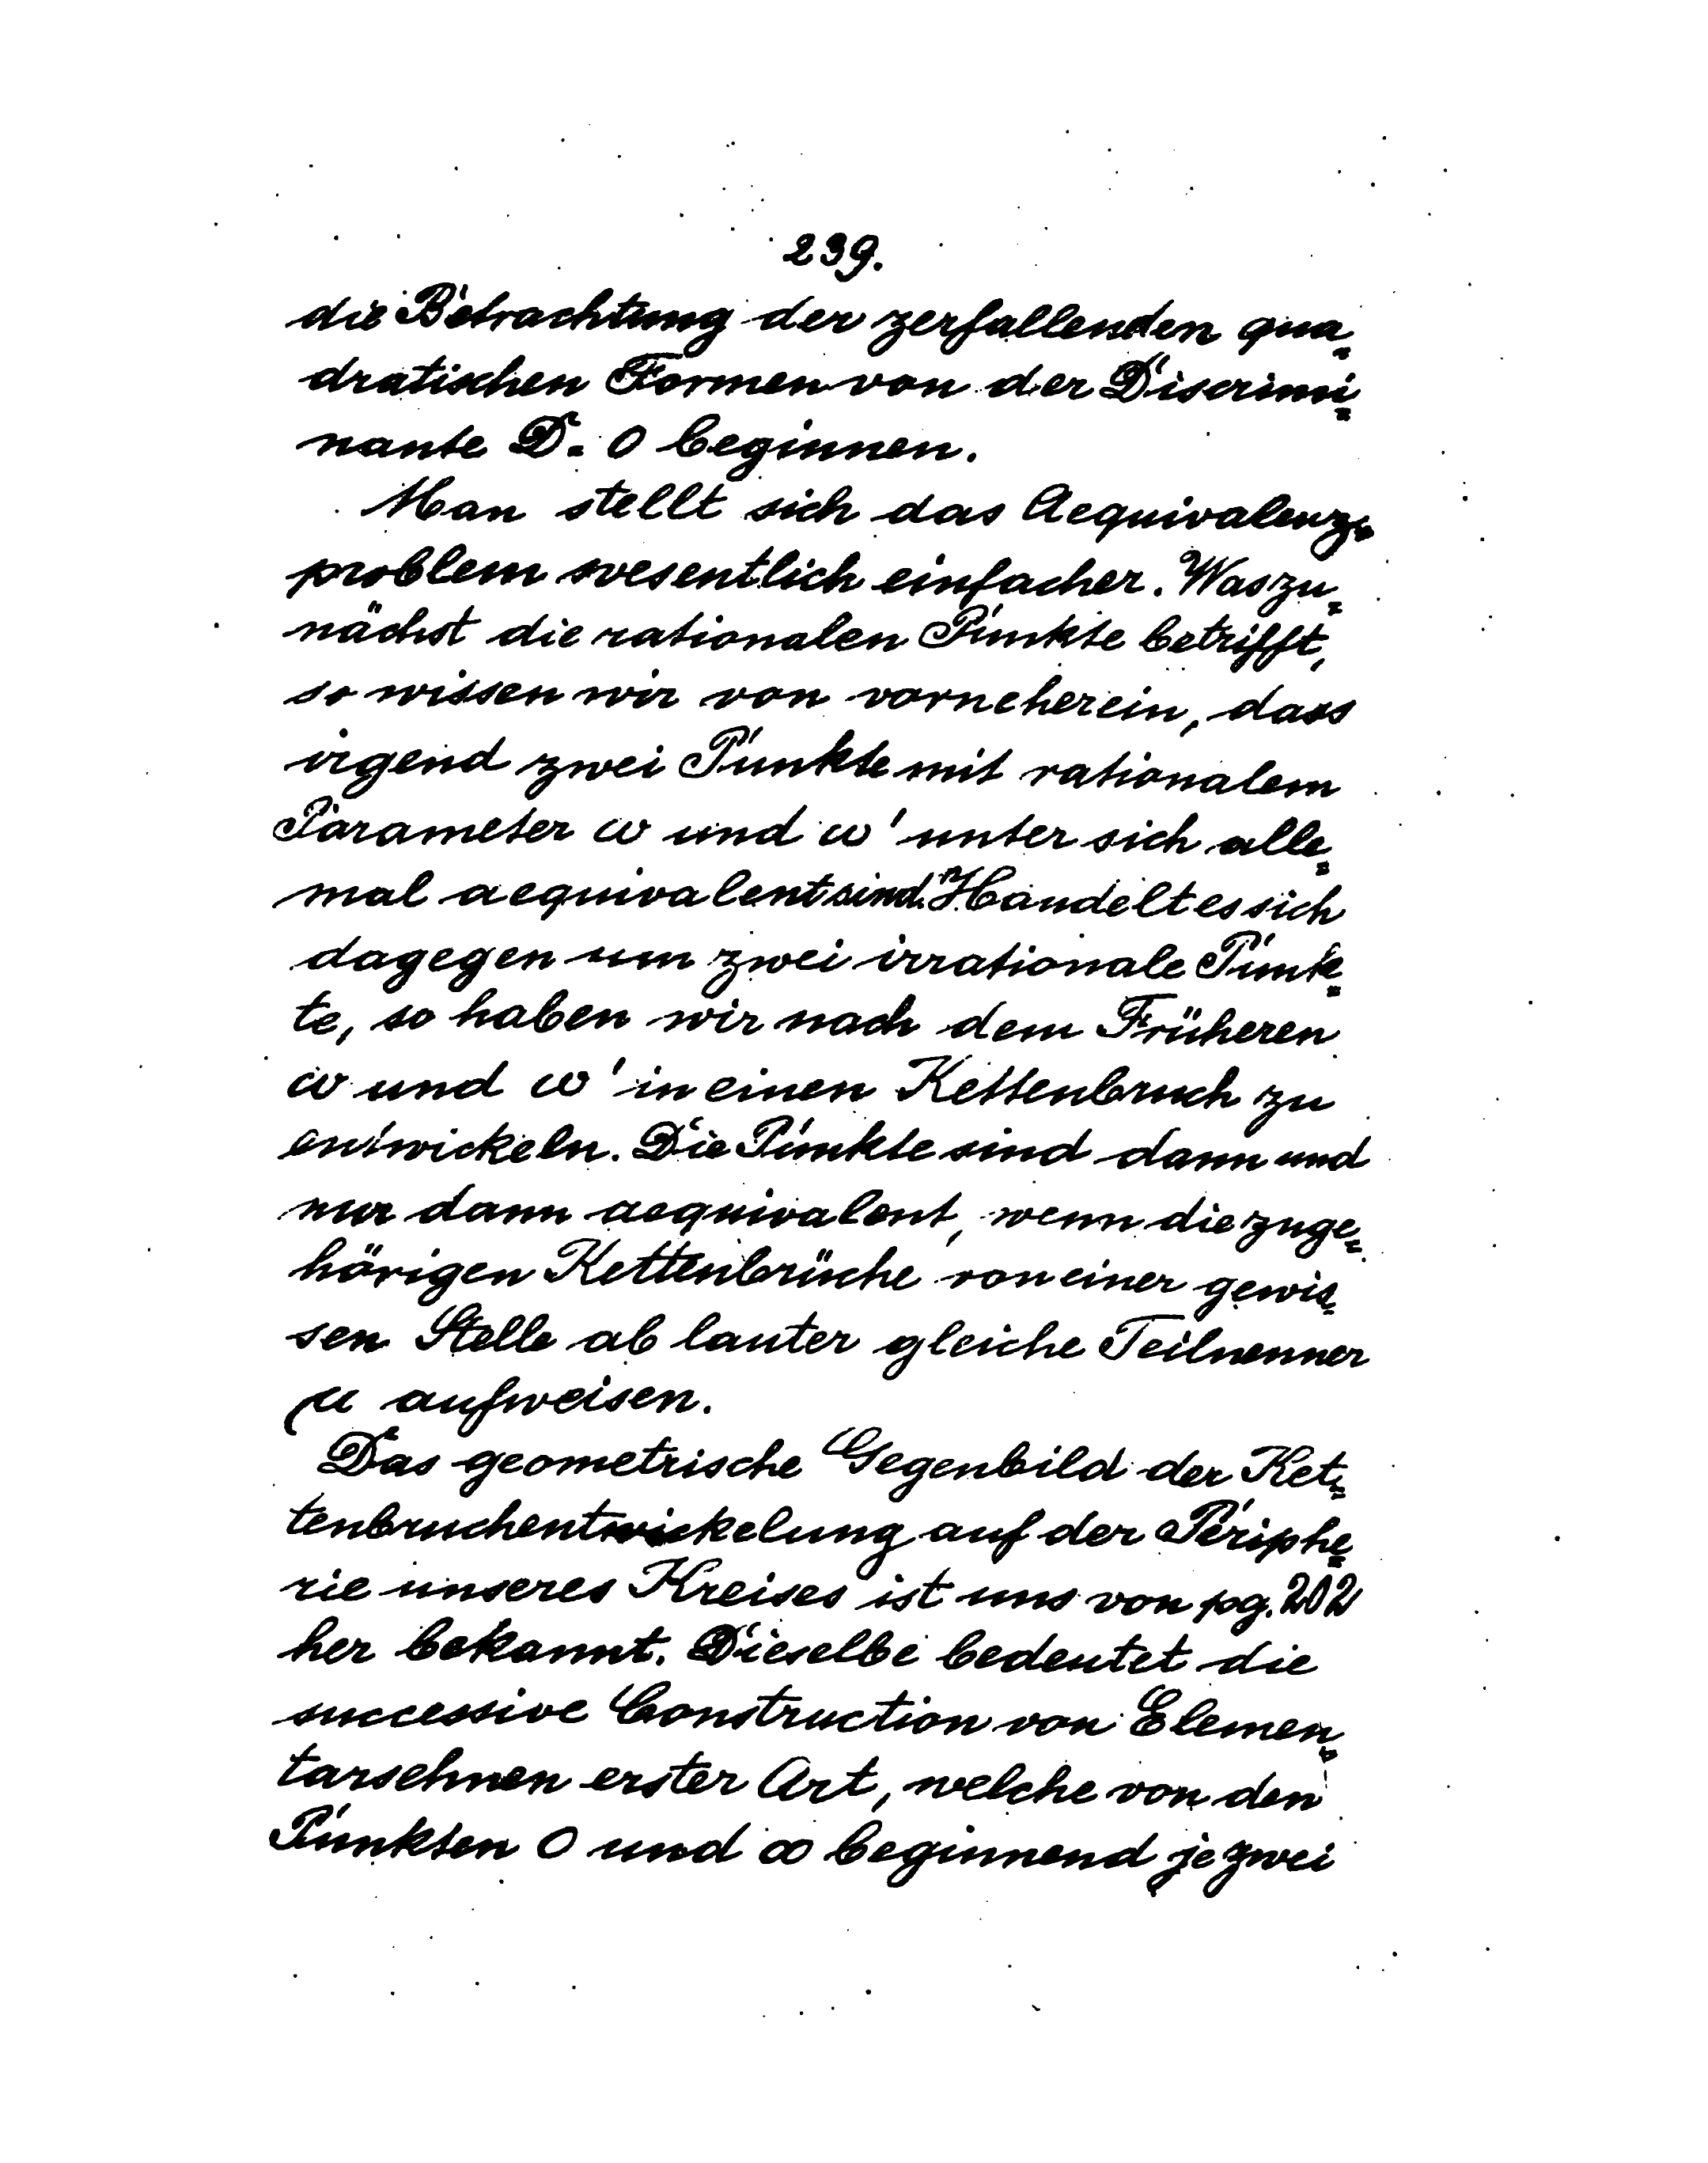 239.
die Betrachtung der zerfallenden qua=
dratischen Formen von der Discrimi=
nante D = 0 beginnen.
Man stellt sich das Aequivalenz=
problem wesentlich einfacher. Was zu=
nächst die rationalen Punkte betrifft,
so wissen wir von vorneherein, dass
irgend zwei Punkte mit rationalem
Parameter ω und ω' unter sich alle=
mal aequivalent sind. Handelt es sich
dagegen um zwei irrationale Punk=
te, so haben wir nach dem Früheren
ω und ω' in einen Kettenbruch zu
entwickeln. Die Punkte sind dann und
nur dann aequivalent, wenn die zuge=
hörigen Kettenbrüche von einer gewis=
sen Stelle ab lauter gleiche Teilnenner
μ aufweisen.
Das geometrische Gegenbild der Ket=
tenbruchentwickelung auf der Periphe=
rie unseres Kreises ist uns von pg. 202
her bekannt. Dieselbe bedeutet die
successive Construction von Elemen=
tarsehnen erster Art, welche von den
Punkten 0 und ∞ beginnend je zwei